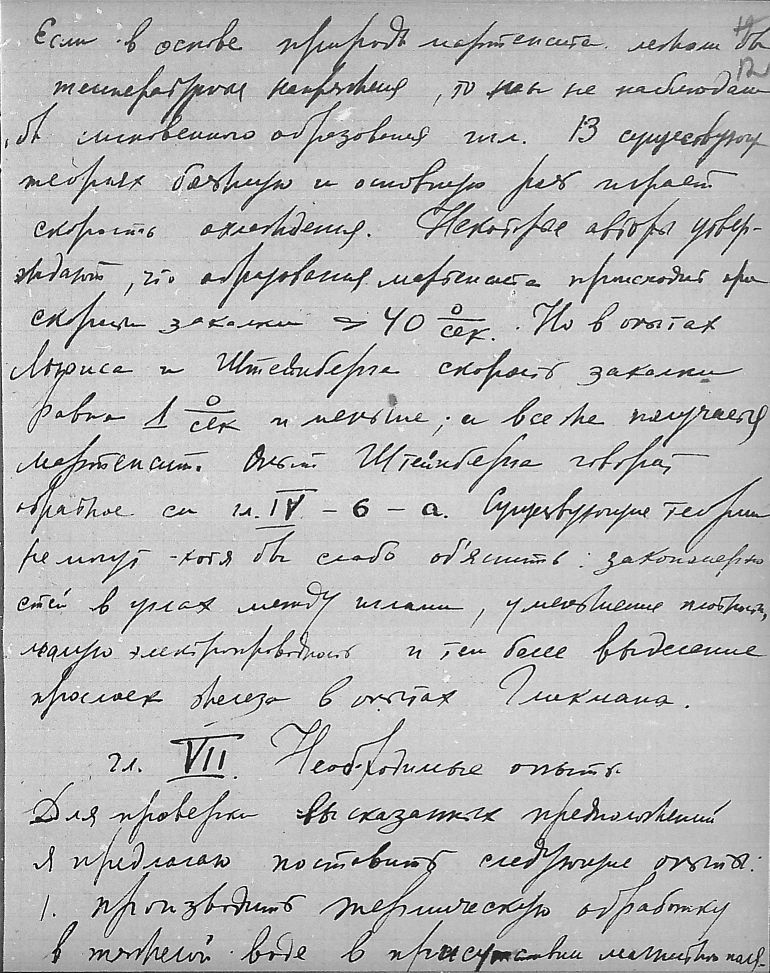 Если в основе природы мартенсита лежали бы
температурные напряжения, то мы не наблюдали
бы мгновенного образования игл. В существующих
теориях большую и основную роль играет
скорость охлаждения. Некоторые авторы утвер-
ждают, что образование мартенсита происходит при
скорости закалки > 40 о/сек. Но в опытах
Льюиса и Штейнберга скорость закалки
равна 1 о/сек и меньше, и все же получается
мартенсит. Опыт Штейнберга говорят
обратное см гл. IV - 6 - а. Существующие теории
не могут хотя бы слабо об'яснить: закономерно
стей в углах между иглами, уменьшение плотности,
малую электропроводность и тем более выделение
прослоек железа в опытах Гликмана.
гл. VII. Необходимые опыты.
Для проверки высказанных предположений
я предлагаю поставить следующие опыты:
1. производить термическую обработку
в тяжелой воде в присутствии магнитного поля